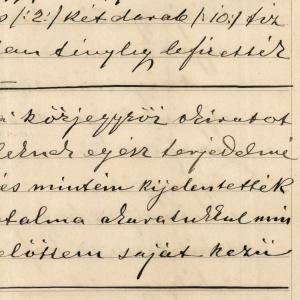 /:2:/ két darab /:10:/ tiz
tényleg lefizettek
közjegyzői okiratot
egész terjedelmé
és mintém kijelentették
talma akaratukkal min
előttem saját kezü